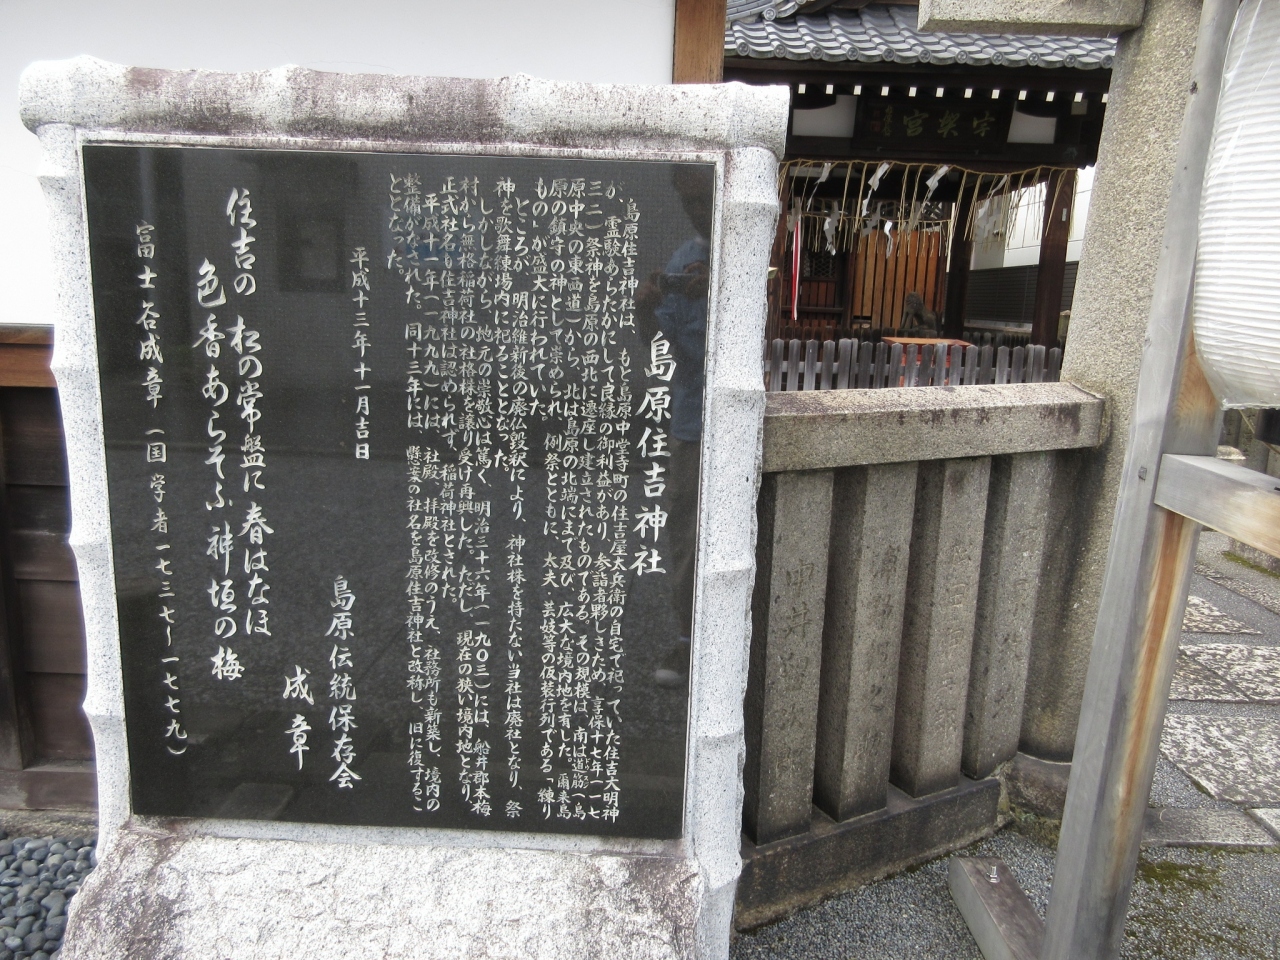 島原住吉神社
島原住吉神社は、もと島原中堂寺町の住吉屋太兵衛の自宅で祀っていた住吉大明神
が、霊験あらたかにして良縁の御利益があり、参詣者夥しきため、享保十七年(一七
三二)祭神を島原の西北に遷座し建立されたものである。その規模は、南は道筋(島
原中央の東西道)から、北は島原の北端にまで及び、広大な境内地を有した。爾来島
原の鎮守の神として崇められ、例祭とともに、太夫・芸妓等の仮装行列である「練り
もの」が盛大に行われていた。
ところが、明治維新後の廃仏毀釈により、神社株を持たない当社は廃社となり、祭
神を歌舞練場内に祀ることとなった。
しかしながら、地元の崇敬心は篤く、明治三十六年(一九〇三)には、船井郡本梅
村から無格稲荷社の社格株を譲り受け再興した。ただし、現在の狭い境内地となり、
正式社名も住吉神社は認められず、稲荷神社とされた。
平成十一年(一九九九)には、社殿、拝殿を改修のうえ、社務所も新築し、境内の
整備がなされた。同十三年には、懸案の社名を島原住吉神社と改称し、旧に復するこ
ととなった。
平成十三年十一月吉日
島原伝統保存会
成章
住吉の 松の常盤に 春はなほ
色香あらそふ 神垣の梅
富士谷成章(国学者 一七三七〜一七七九)